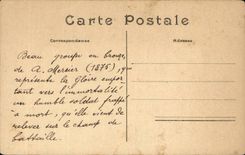 Carte Postale
Correspondance
Adresse
Beau groupe en bronze,
de A. Mercier (1875), qui
représente la Gloire empor
tant vers l'immortalité
un humble soldat frappé
à mort, qu'elle vient de
relever sur le champ de
battaille.